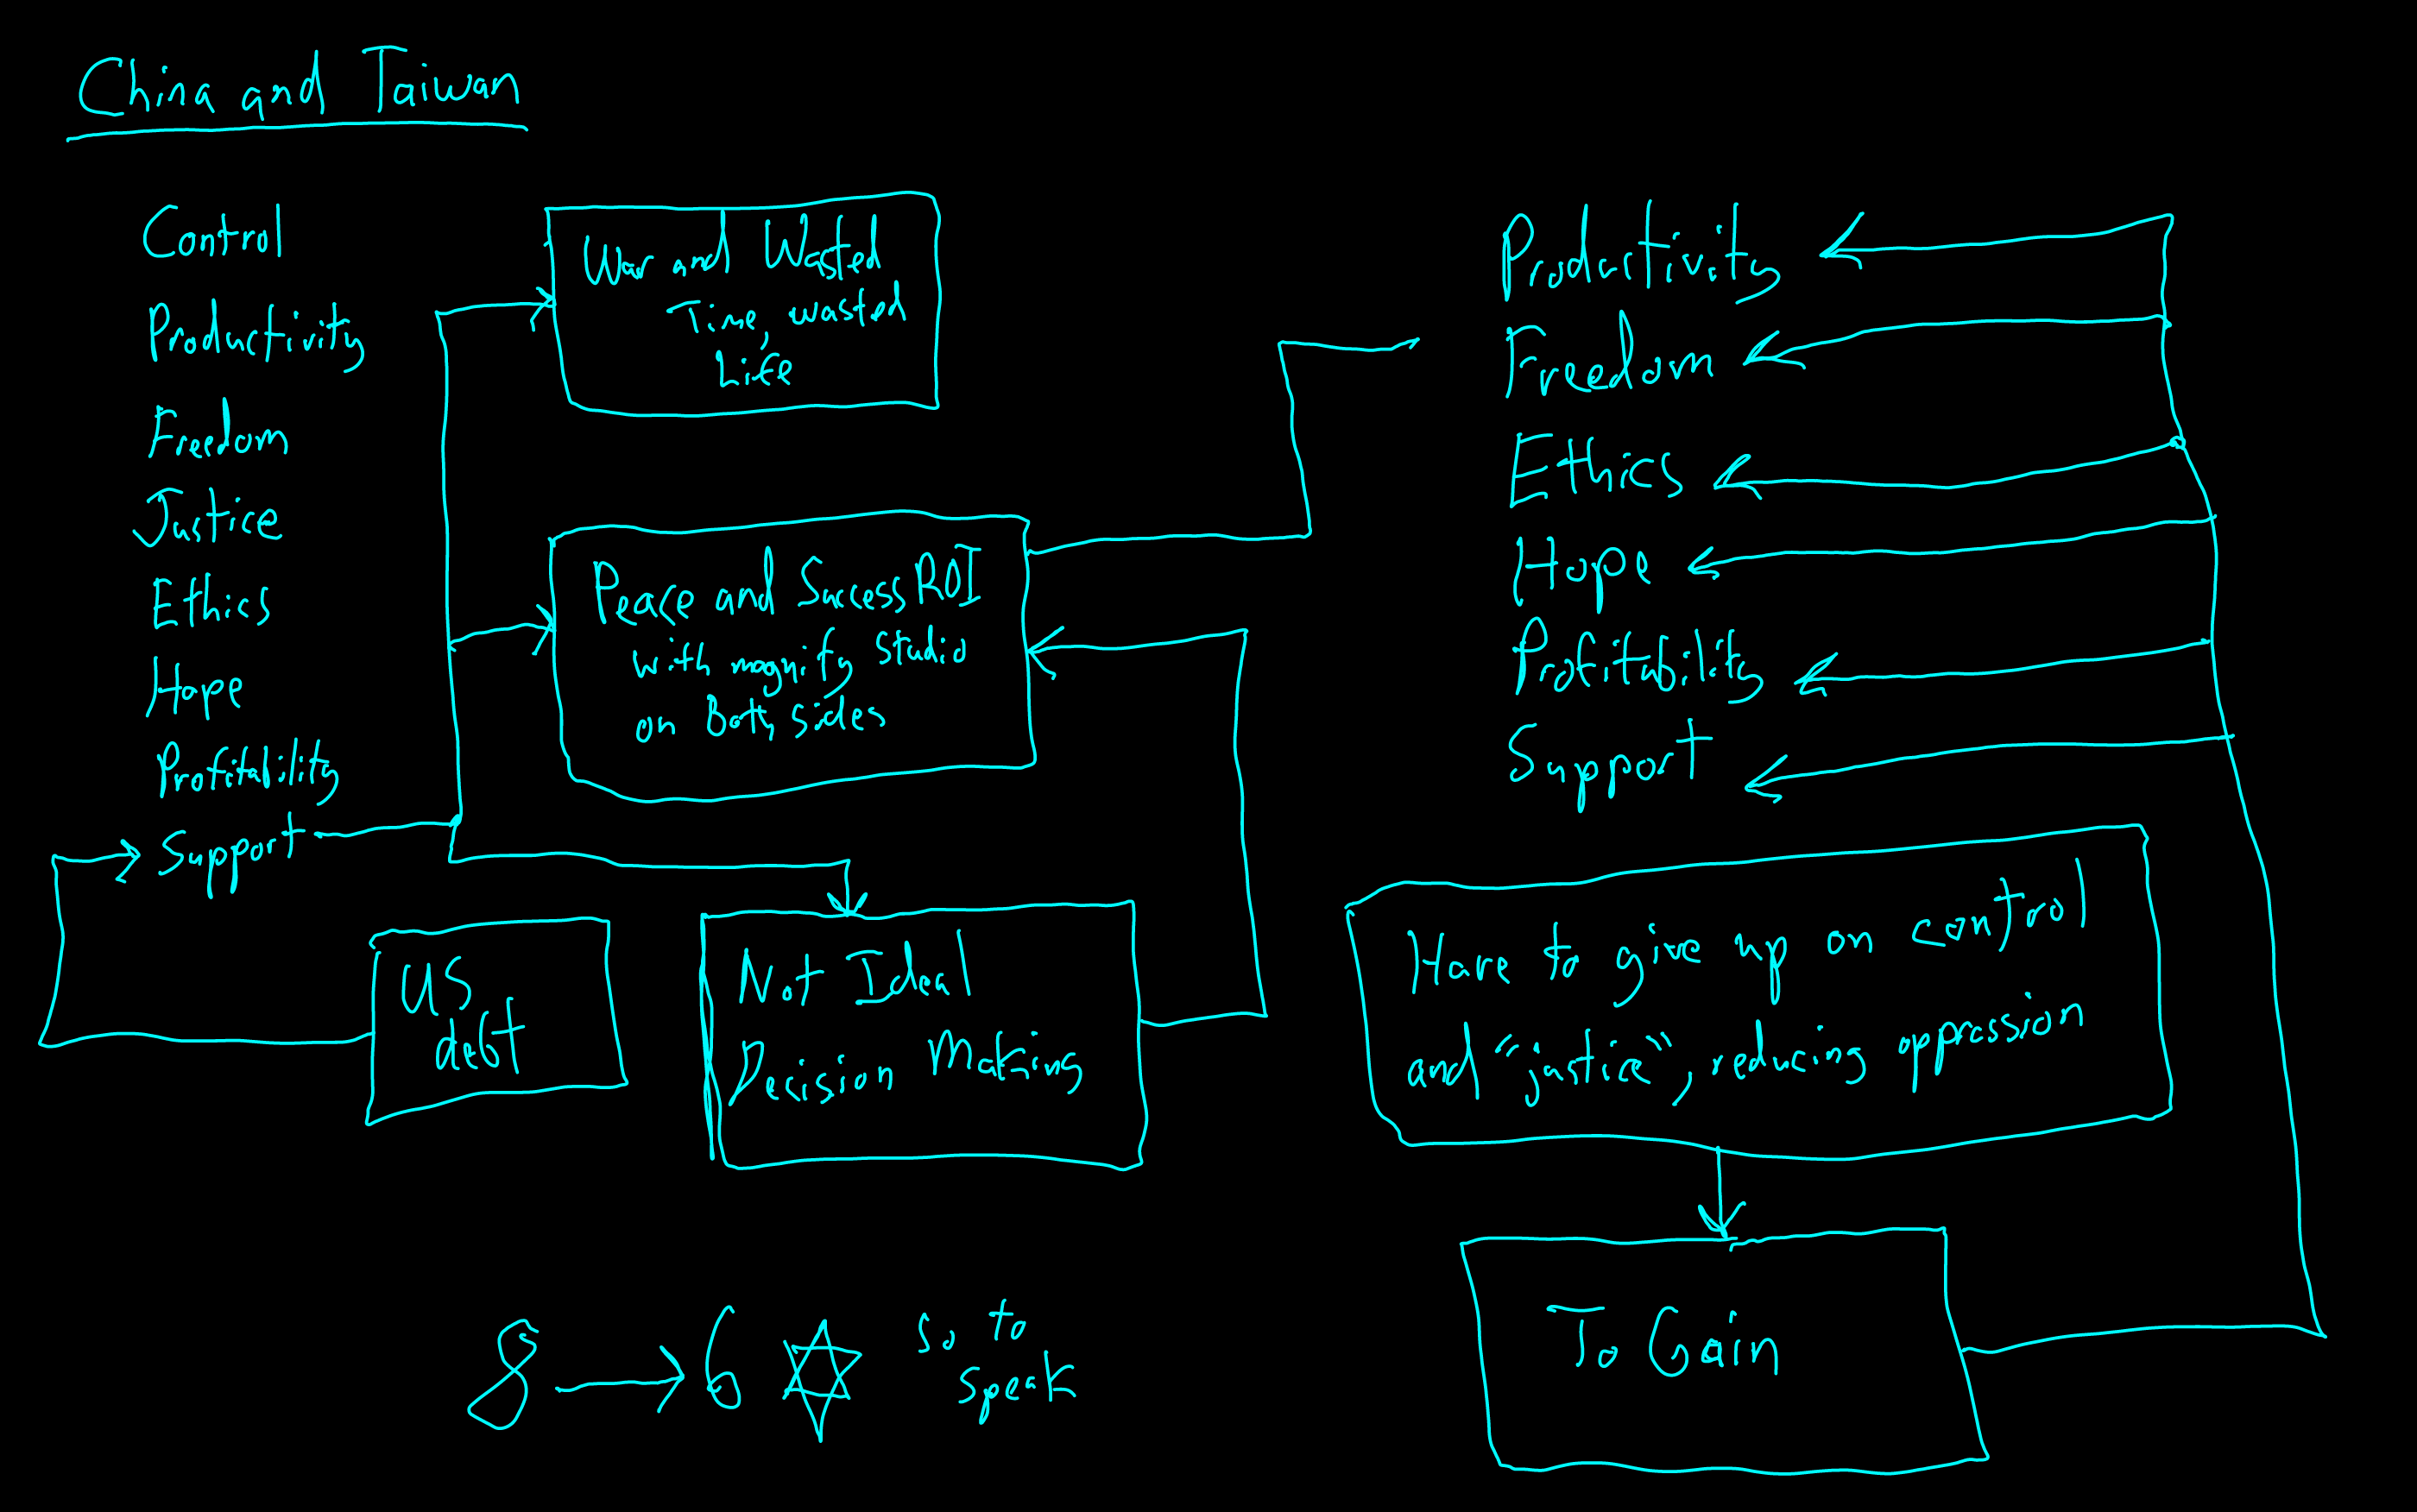 China and Taiwan
Control
Productivity
Freedom
Justice
Ethics
Hope
Profitability
Support
US
debt
War and Wasted
Time, wasted
Life
Peace and Success ROI
with magnify studio
on Both sides
Not Ideal
Decision Making
8 → 6 ✡ so to
speak
Productivity
Freedom
Ethics
Hope
Profitability
Support
Have to give up on control
and "justice", reducing oppression
To Gain